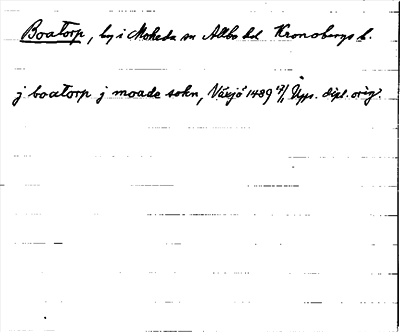 Boatorp, by i Moheda sn Allbo hd Kronobergs l.
j boatorp j moade sokn, Växjö 1489 Upps. dipl. orig.